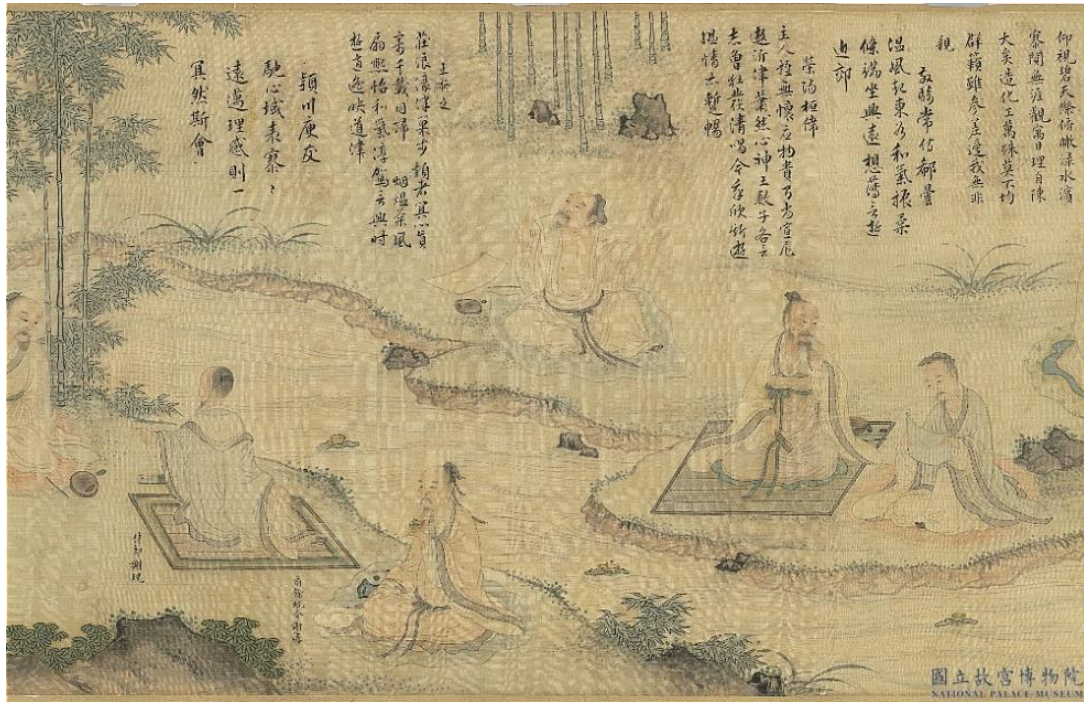 仰視碧天際俯瞰淥水濱
寥閴無涯觀寓目理自陳
大矣造化工萬殊莫不均
群籟雖參差適我無非
親
散騎常侍郗曇
温風起東谷和氣振柔
條端坐興遠想薄言遊
近郊
滎陽桓偉
主人雖無懷應物貴有尚宣尼
遨沂津蕭然心神王數子各言
志曾生發清唱今我欣斯遊
愠情亦暫暢
王凝之
莊浪濠津巢步潁湄冥心真
寄千載同歸 烟熅柔風
扇熙怡和氣淳駕言興時
遊逍遙映通津
潁川庾友
馳心域表寥々
遠邁理感則一
冥然斯會
侍郎謝瑰
前餘姚令謝
國立故宮博物院
NATIONAL PALACE MUSEUM